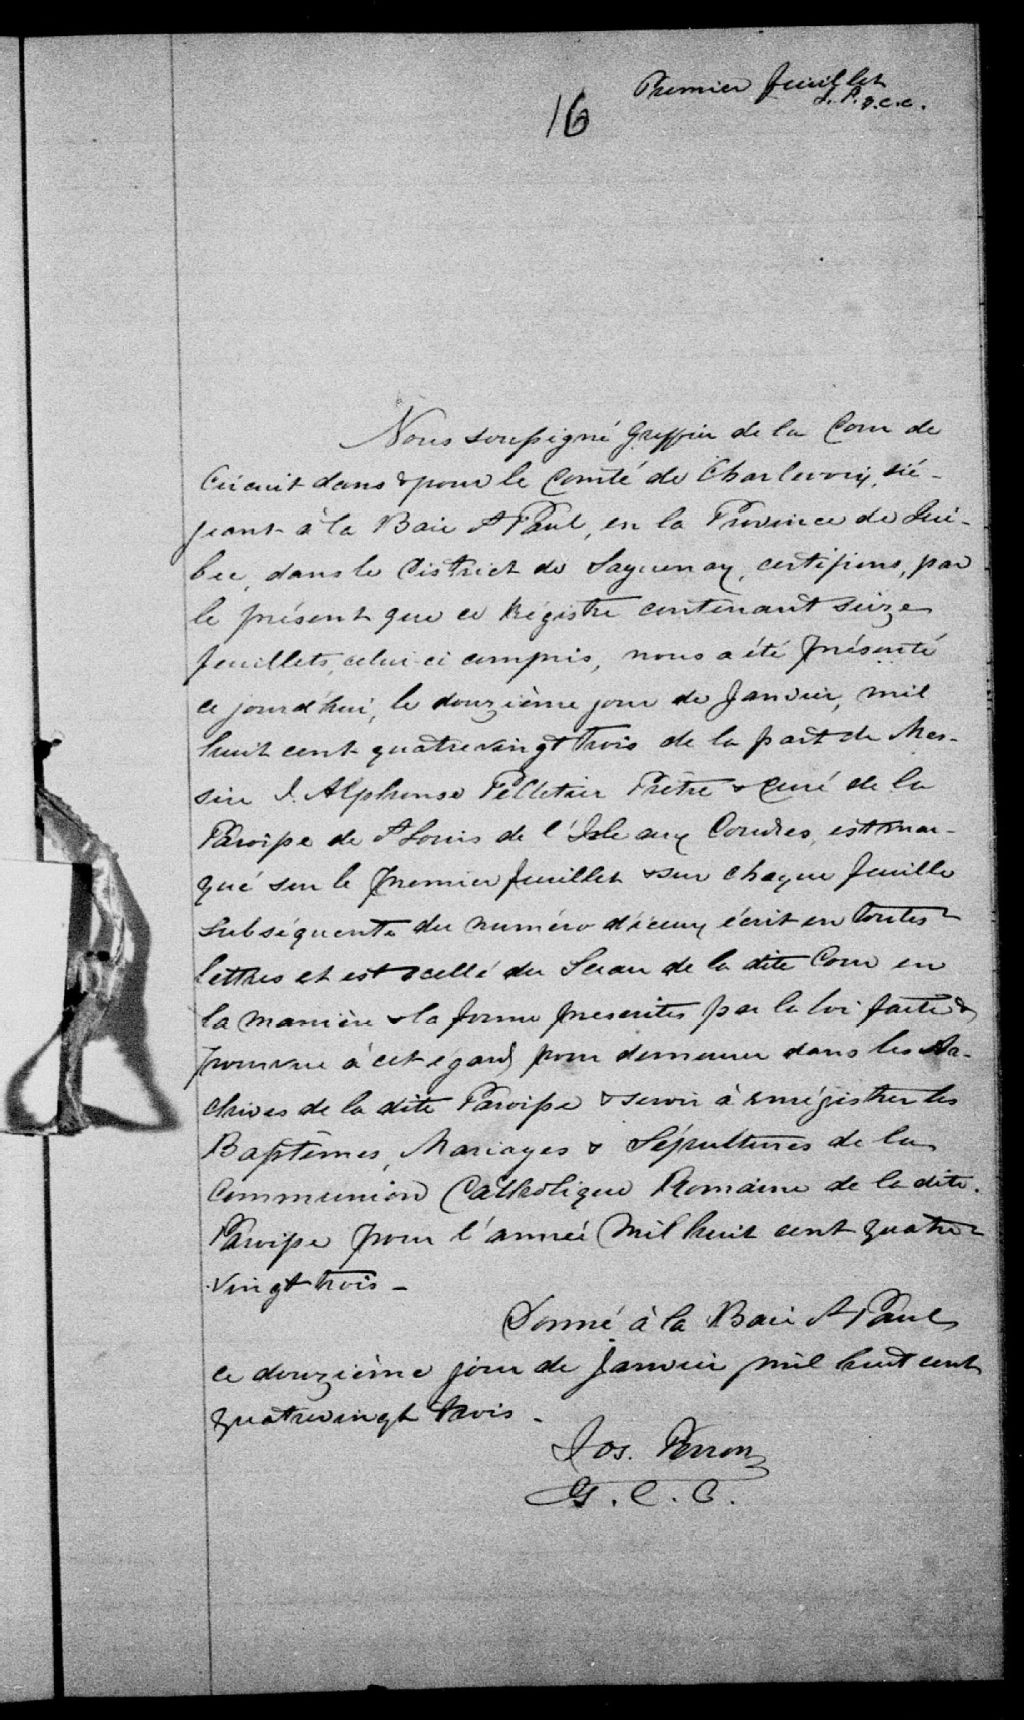 Premier feuillet
J. P. g.c.c.
16
Nous soussigné Greffier de la Cour de
Circuit dans & pour le Comté de Charlevoix, sié-
geant à la Baie St Paul, en la Province de Qué-
bec, dans le District de Saguenay, certifions, par
le présent que ce Régistre contenant seize
feuillets, celui-ci compris, nous a été présenté
ce jourd'hui, le douzième jour de Janvier, mil
huit cent quatrevingt trois de la part de Mes-
sire J. Alphonse Pelletier Prêtre & Curé de la
Paroisse de St Louis de l'Isle aux Coudres, est mar-
qué sur le premier feuillet & sur chaque feuille
subséquente du numéro d'iceux écrit en toutes
lettres et est scellé du Sceau de la dite Cour en
la manière & la forme prescrites par la loi faite &
pourvue à cet egard pour demeurer dans les Ar-
chives de la dite Paroisse & servir à enrégistrer les
Baptêmes, Mariages & Sépultures de la
Communion Catholique Romaine de la dite
Paroisse pour l'année mil huit cent quatre
vingt trois -
Donné à la Baie St Paul
ce douzième jour de Janvier mil huit cent
quatrevingt trois -
Jos. Perron
G. C. C.